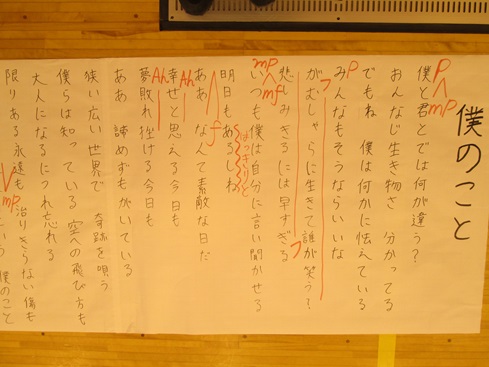 僕のこと
P mP
僕と君とでは何が違う?
おんなじ生き物さ 分かってる
でもね 僕は何かに怯えている
P
みんなもそうならいいな
がむしゃらに生きて誰が笑う?
悲しみきるには早すぎる
mp mf
いつも僕は自分に言い聞かせる
明日もあるしね
はっきりと
f
ああ なんて素敵な日だ
Ah
幸せと思える今日も
Ah
夢敗れ挫ける今日も
ああ 諦めずもがいている
狭い広い世界で 奇跡を唄う
僕らは知っている 空への飛び方も
大人になるにつれ忘れる
限りある永遠も 治りきらない傷も
mp
僕のこと